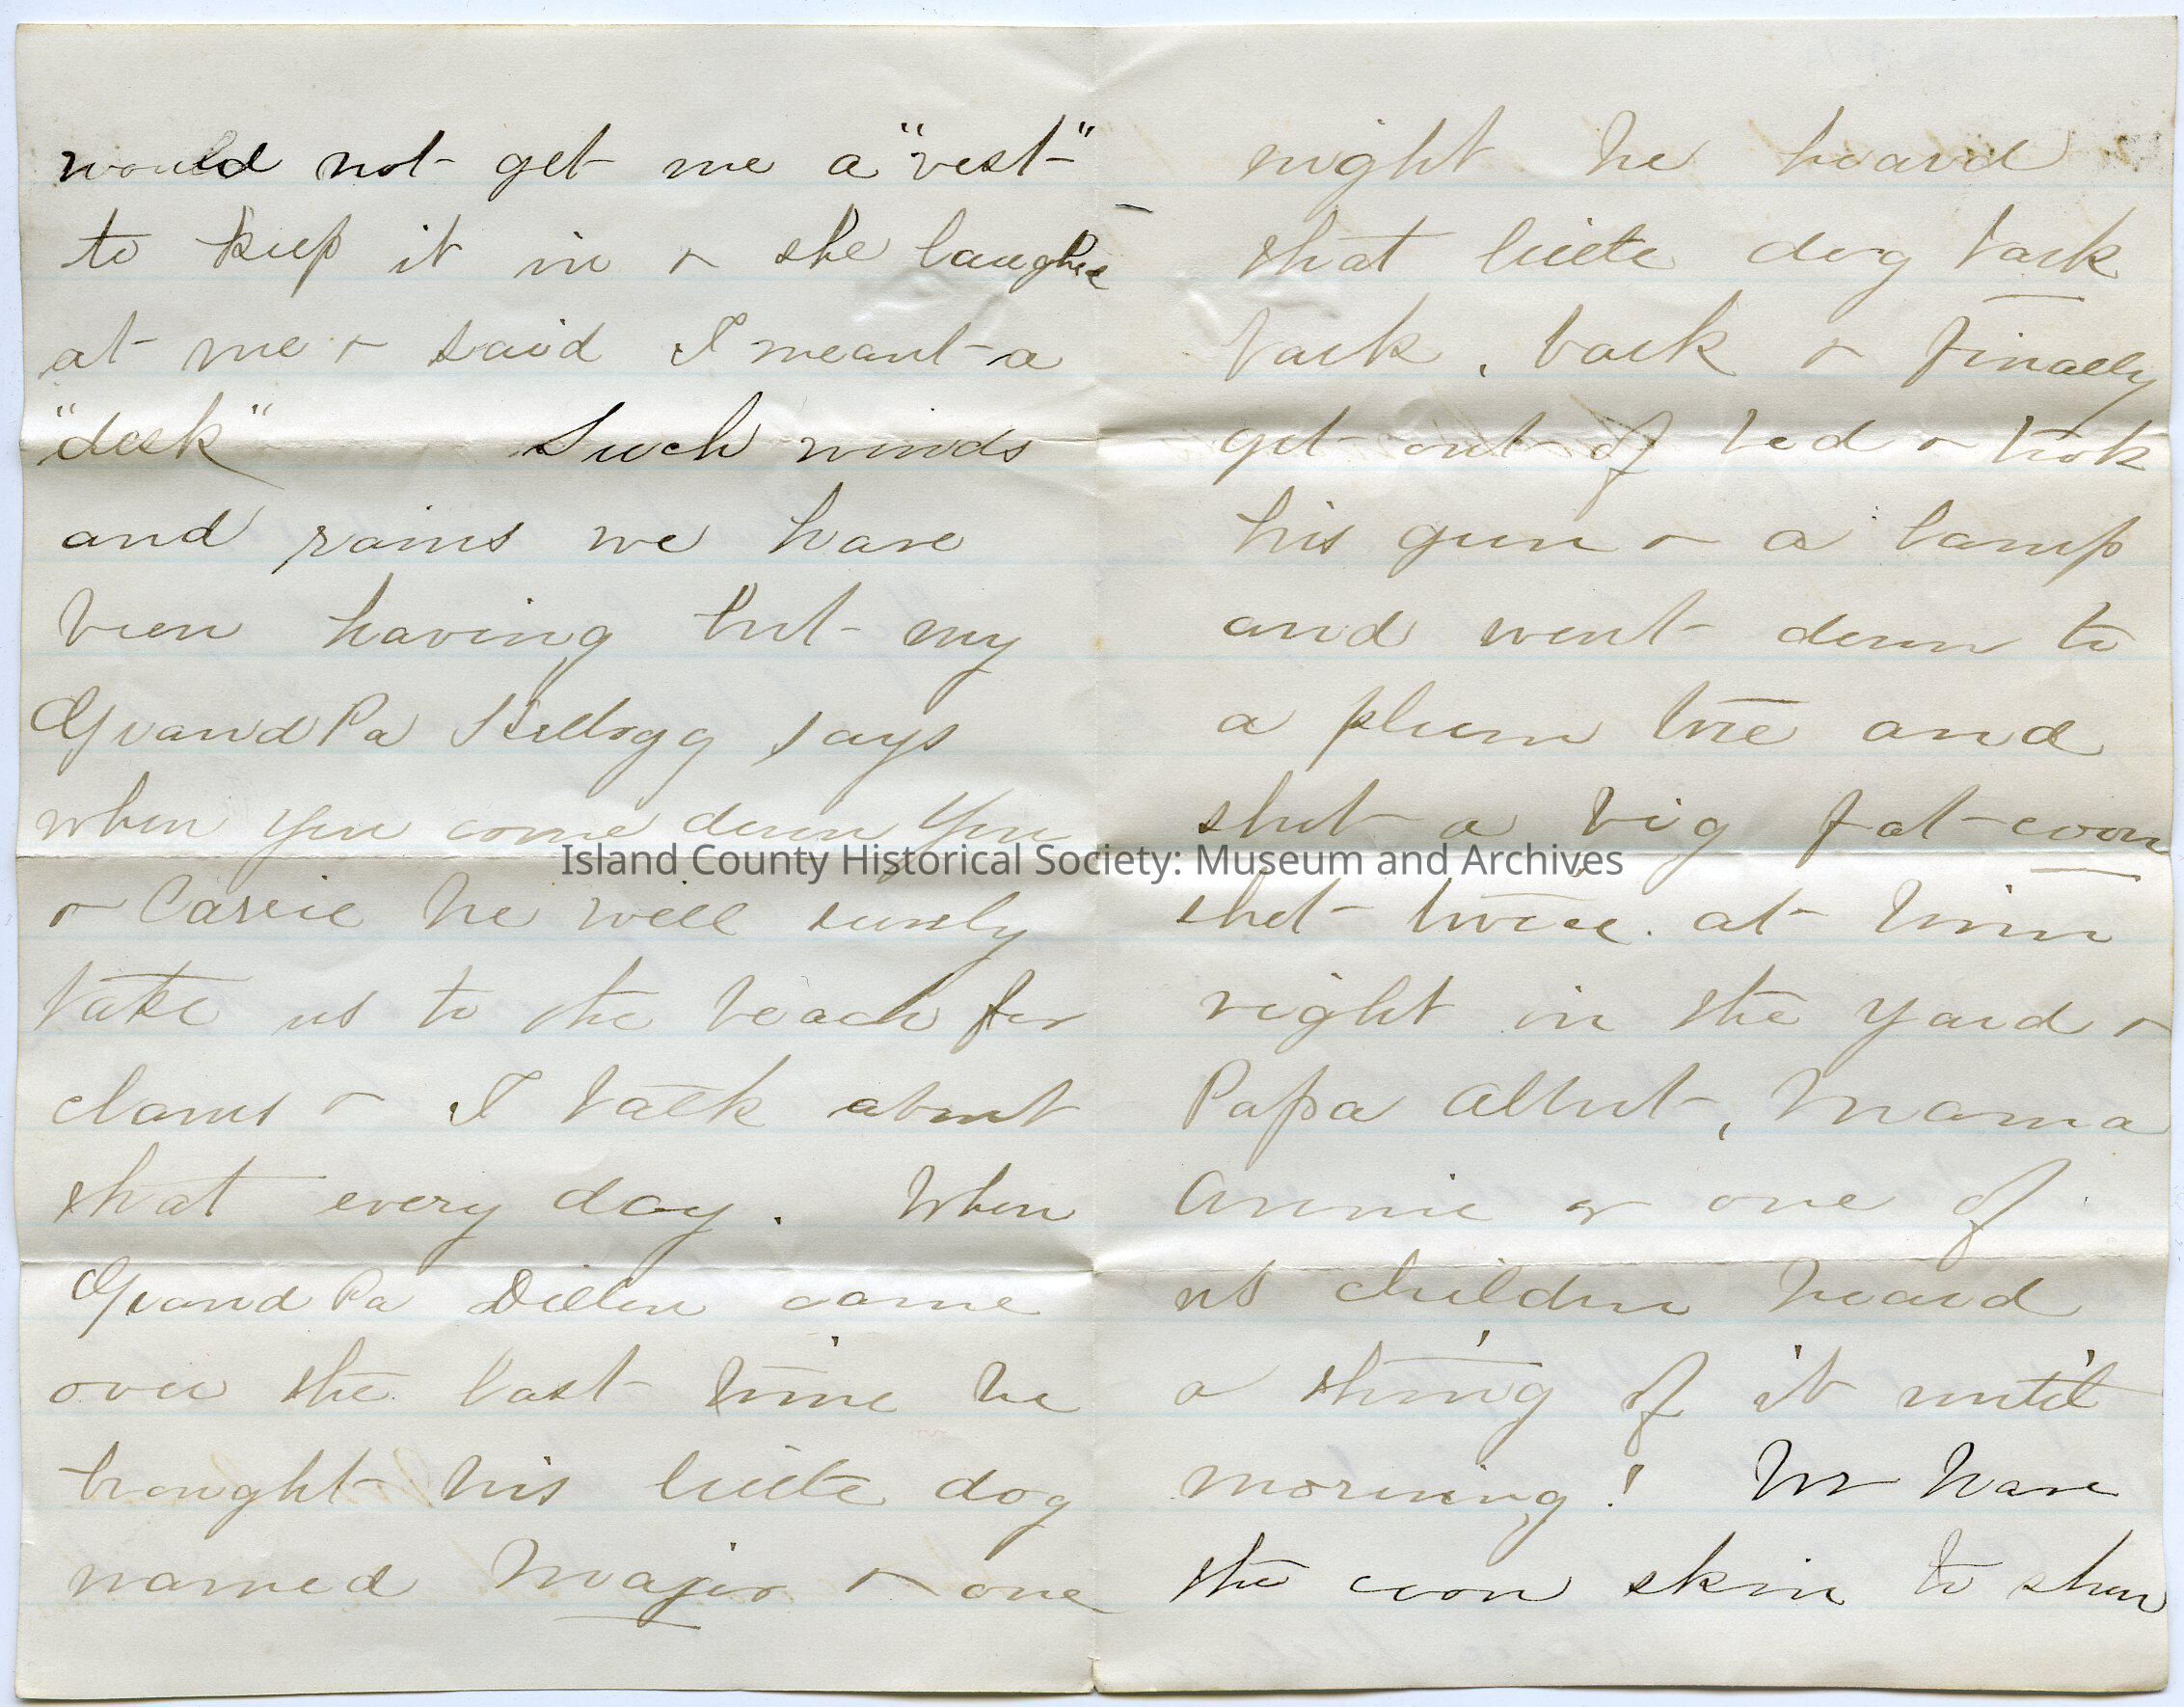 would not get me a "vest"
to keep it in & she laughed
at me & said I meant a
"desk" Such winds
and rains we have
been having but my
GrandPa Kellogg says
when you come down you
& Cassie he will surely
take us to the beach for
clams & I talk about
that every day. When
GrandPa Dillon came
over the last time he
brought his little dog
named Major & one
night he heard
that little dog bark
bark, bark & finally
got out of bed & took
his gun & a lamp
and went down to
a plum tree and
shot a big fat coon
shot twice at him
right in the yard &
Papa Albert, Mama
Annie or one of
us children heard
a thing of it until
morning! We have
the coon skin to show
Island County Historical Society: Museum and Archives